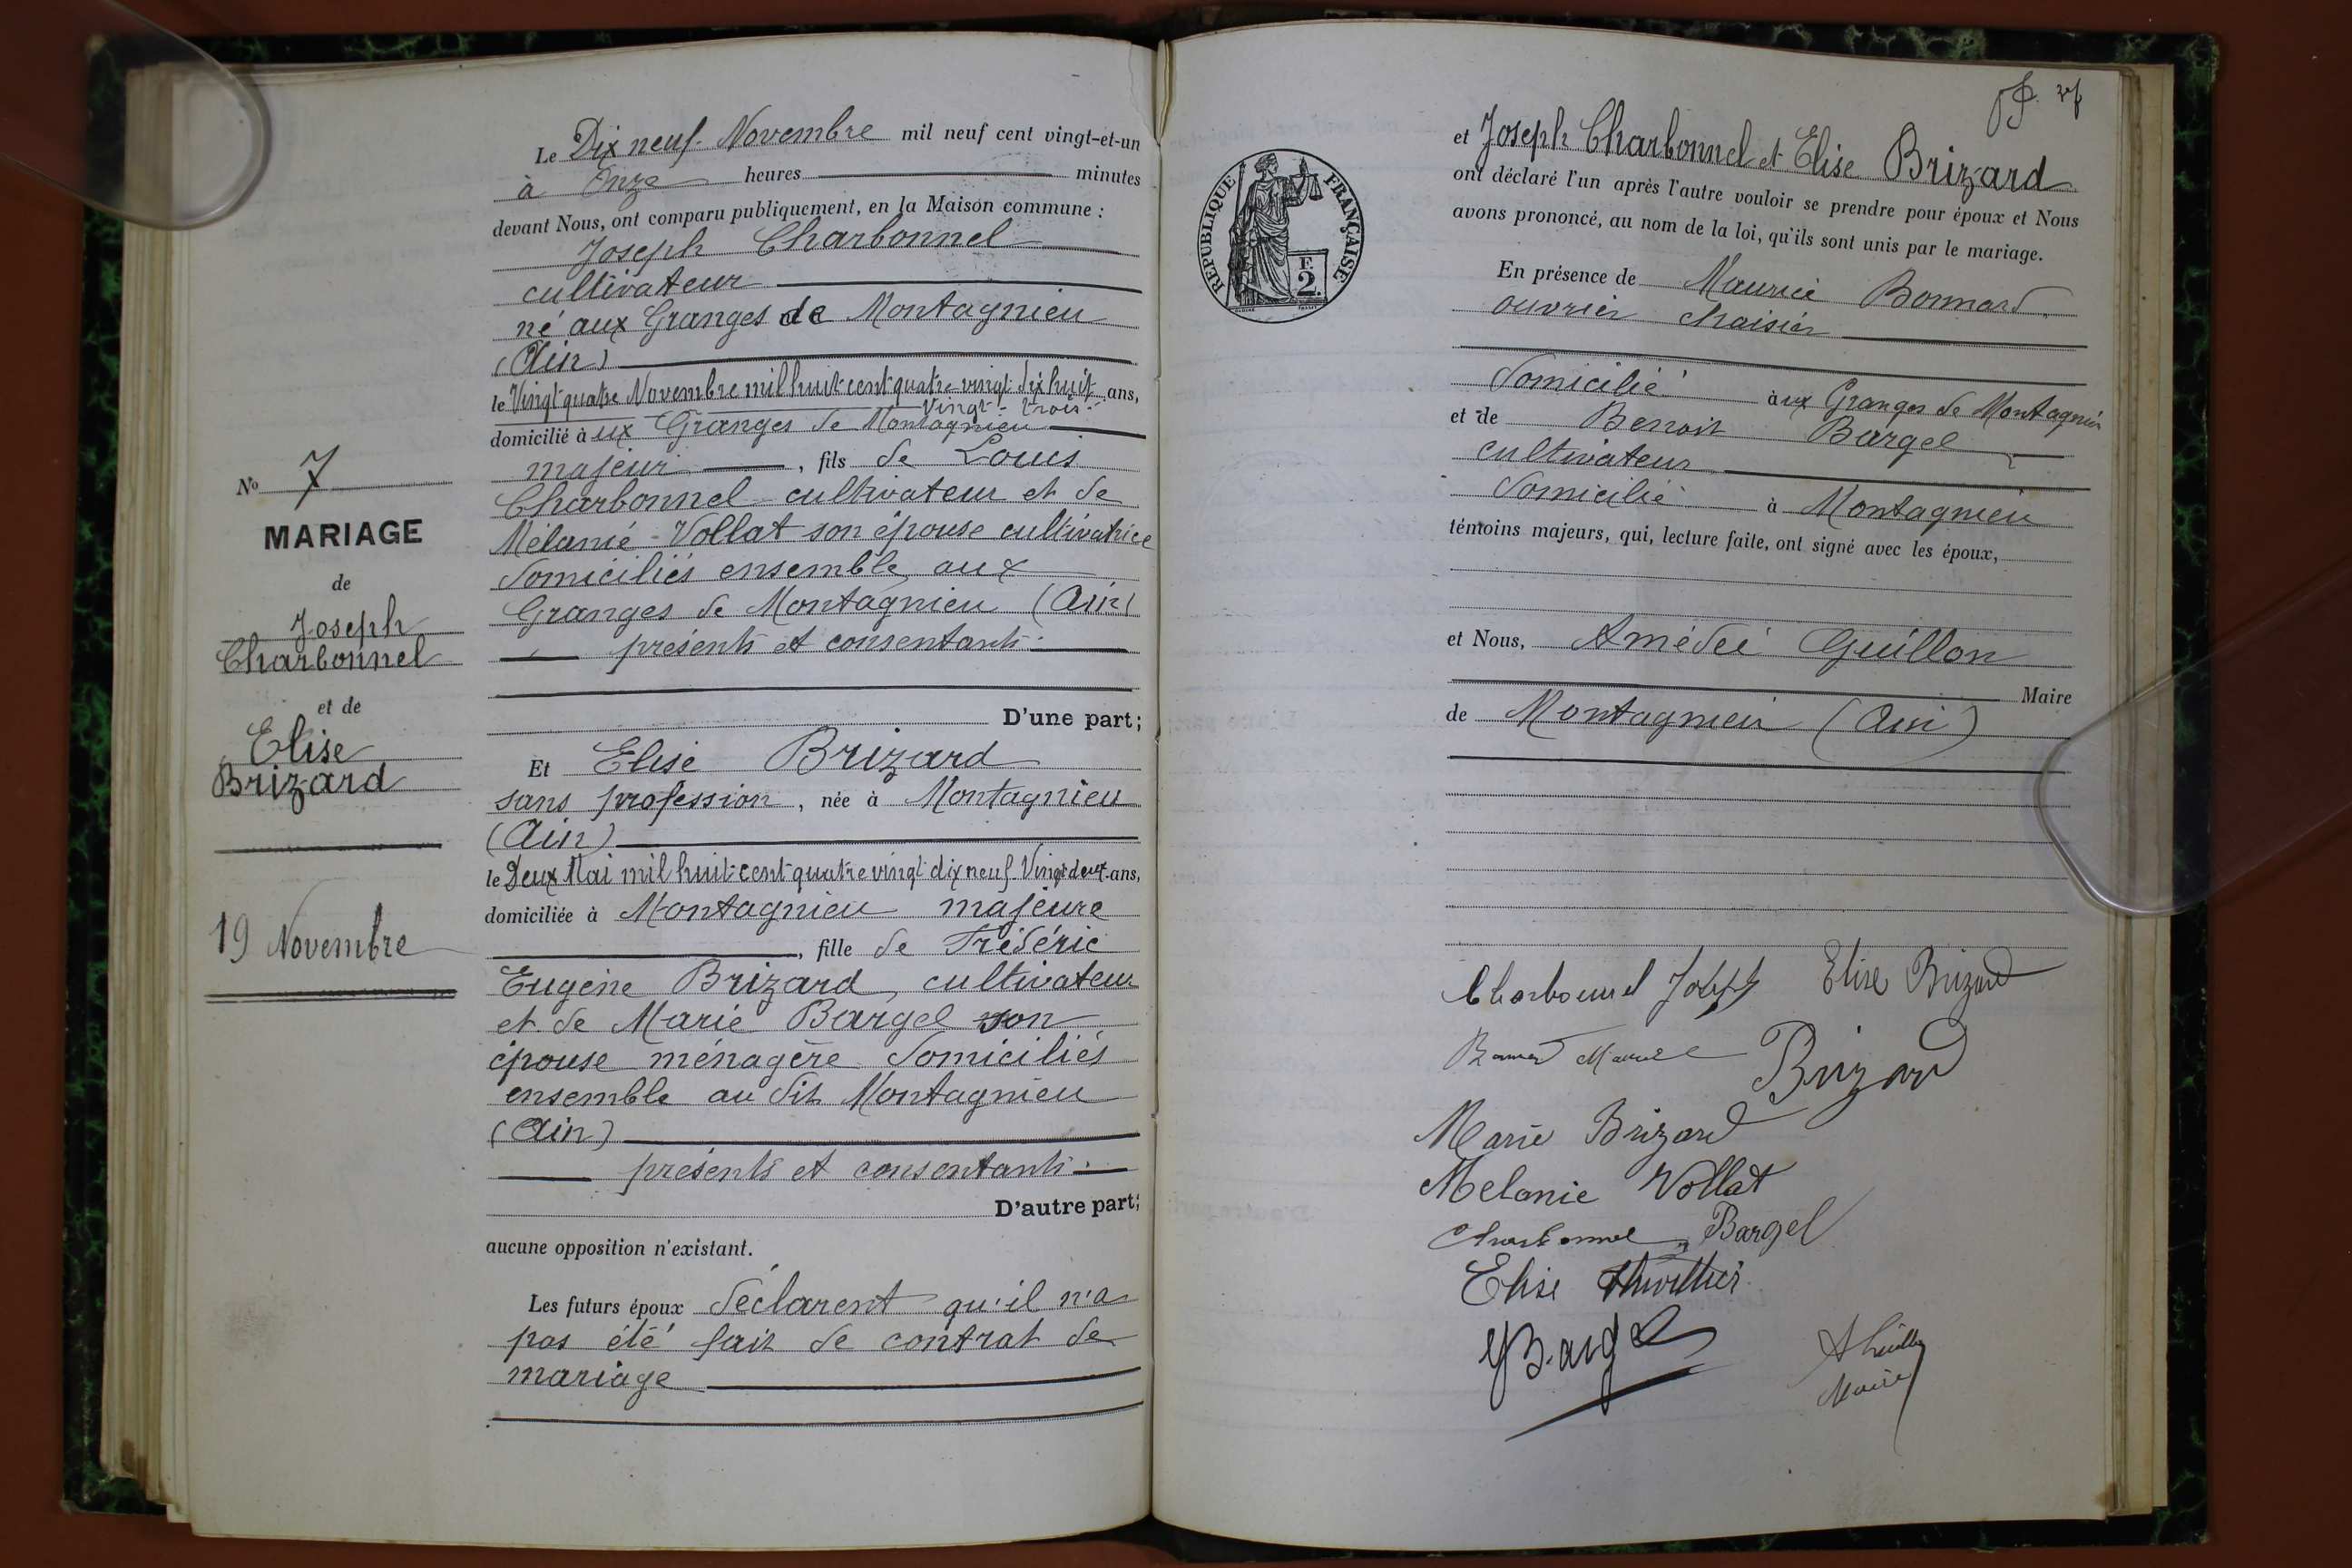 No 7
MARIAGE
de
Joseph
Charbonnel
et de
Elise
Brizard
19 Novembre
Le Dix neuf Novembre mil neuf cent vingt-et-un
à Onze heures minutes
devant Nous, ont comparu publiquement, en la Maison commune :
Joseph Charbonnel
cultivateur
né aux Granges de Montagnieu
(Ain)
le Vingt quatre Novembre mil huit cent quatre vingt dix huit ans,
Vingt-trois
domicilié à ux Granges de Montagnieu
majeur, fils de Louis
Charbonnel cultivateur et de
Mélanie Vollat son épouse cultivatrice
domiciliés ensemble aux
Granges de Montagnieu (Ain)
présents et consentants
D'une part;
Et Elise Brizard
sans profession, née à Montagnieu
(Ain)
le Deux Mai mil huit cent quatre vingt dix neuf Vingt deux ans,
domiciliée à Montagnieu majeure
, fille de Frédéric
Eugène Brizard, cultivateur
et de Marie Bargel son
épouse ménagère domiciliés
ensemble au dit Montagnieu
(Ain)
présents et consentants
D'autre part;
aucune opposition n'existant.
Les futurs époux déclarent qu'il n'a
pas été fait de contrat de
mariage
REPUBLIQUE FRANÇAISE
F.
2
et Joseph Charbonnel et Elise Brizard
ont déclaré l'un après l'autre vouloir se prendre pour époux et Nous
avons prononcé, au nom de la loi, qu'ils sont unis par le mariage.
En présence de Maurice Bonnard
ouvrier chaisier
domicilié aux Granges de Montagnieu
et de Benoit Bargel
cultivateur
domicilié à Montagnieu
témoins majeurs, qui, lecture faite, ont signé avec les époux,
et Nous, Amédée Guillon
Maire
de Montagnieu (Ain)
Charbonnel Joseph Elise Brizard
Maurice Brizard
Marie Brizard
Melanie Vollat
Charbonnel Bargel
Elise
Bargel
Maire